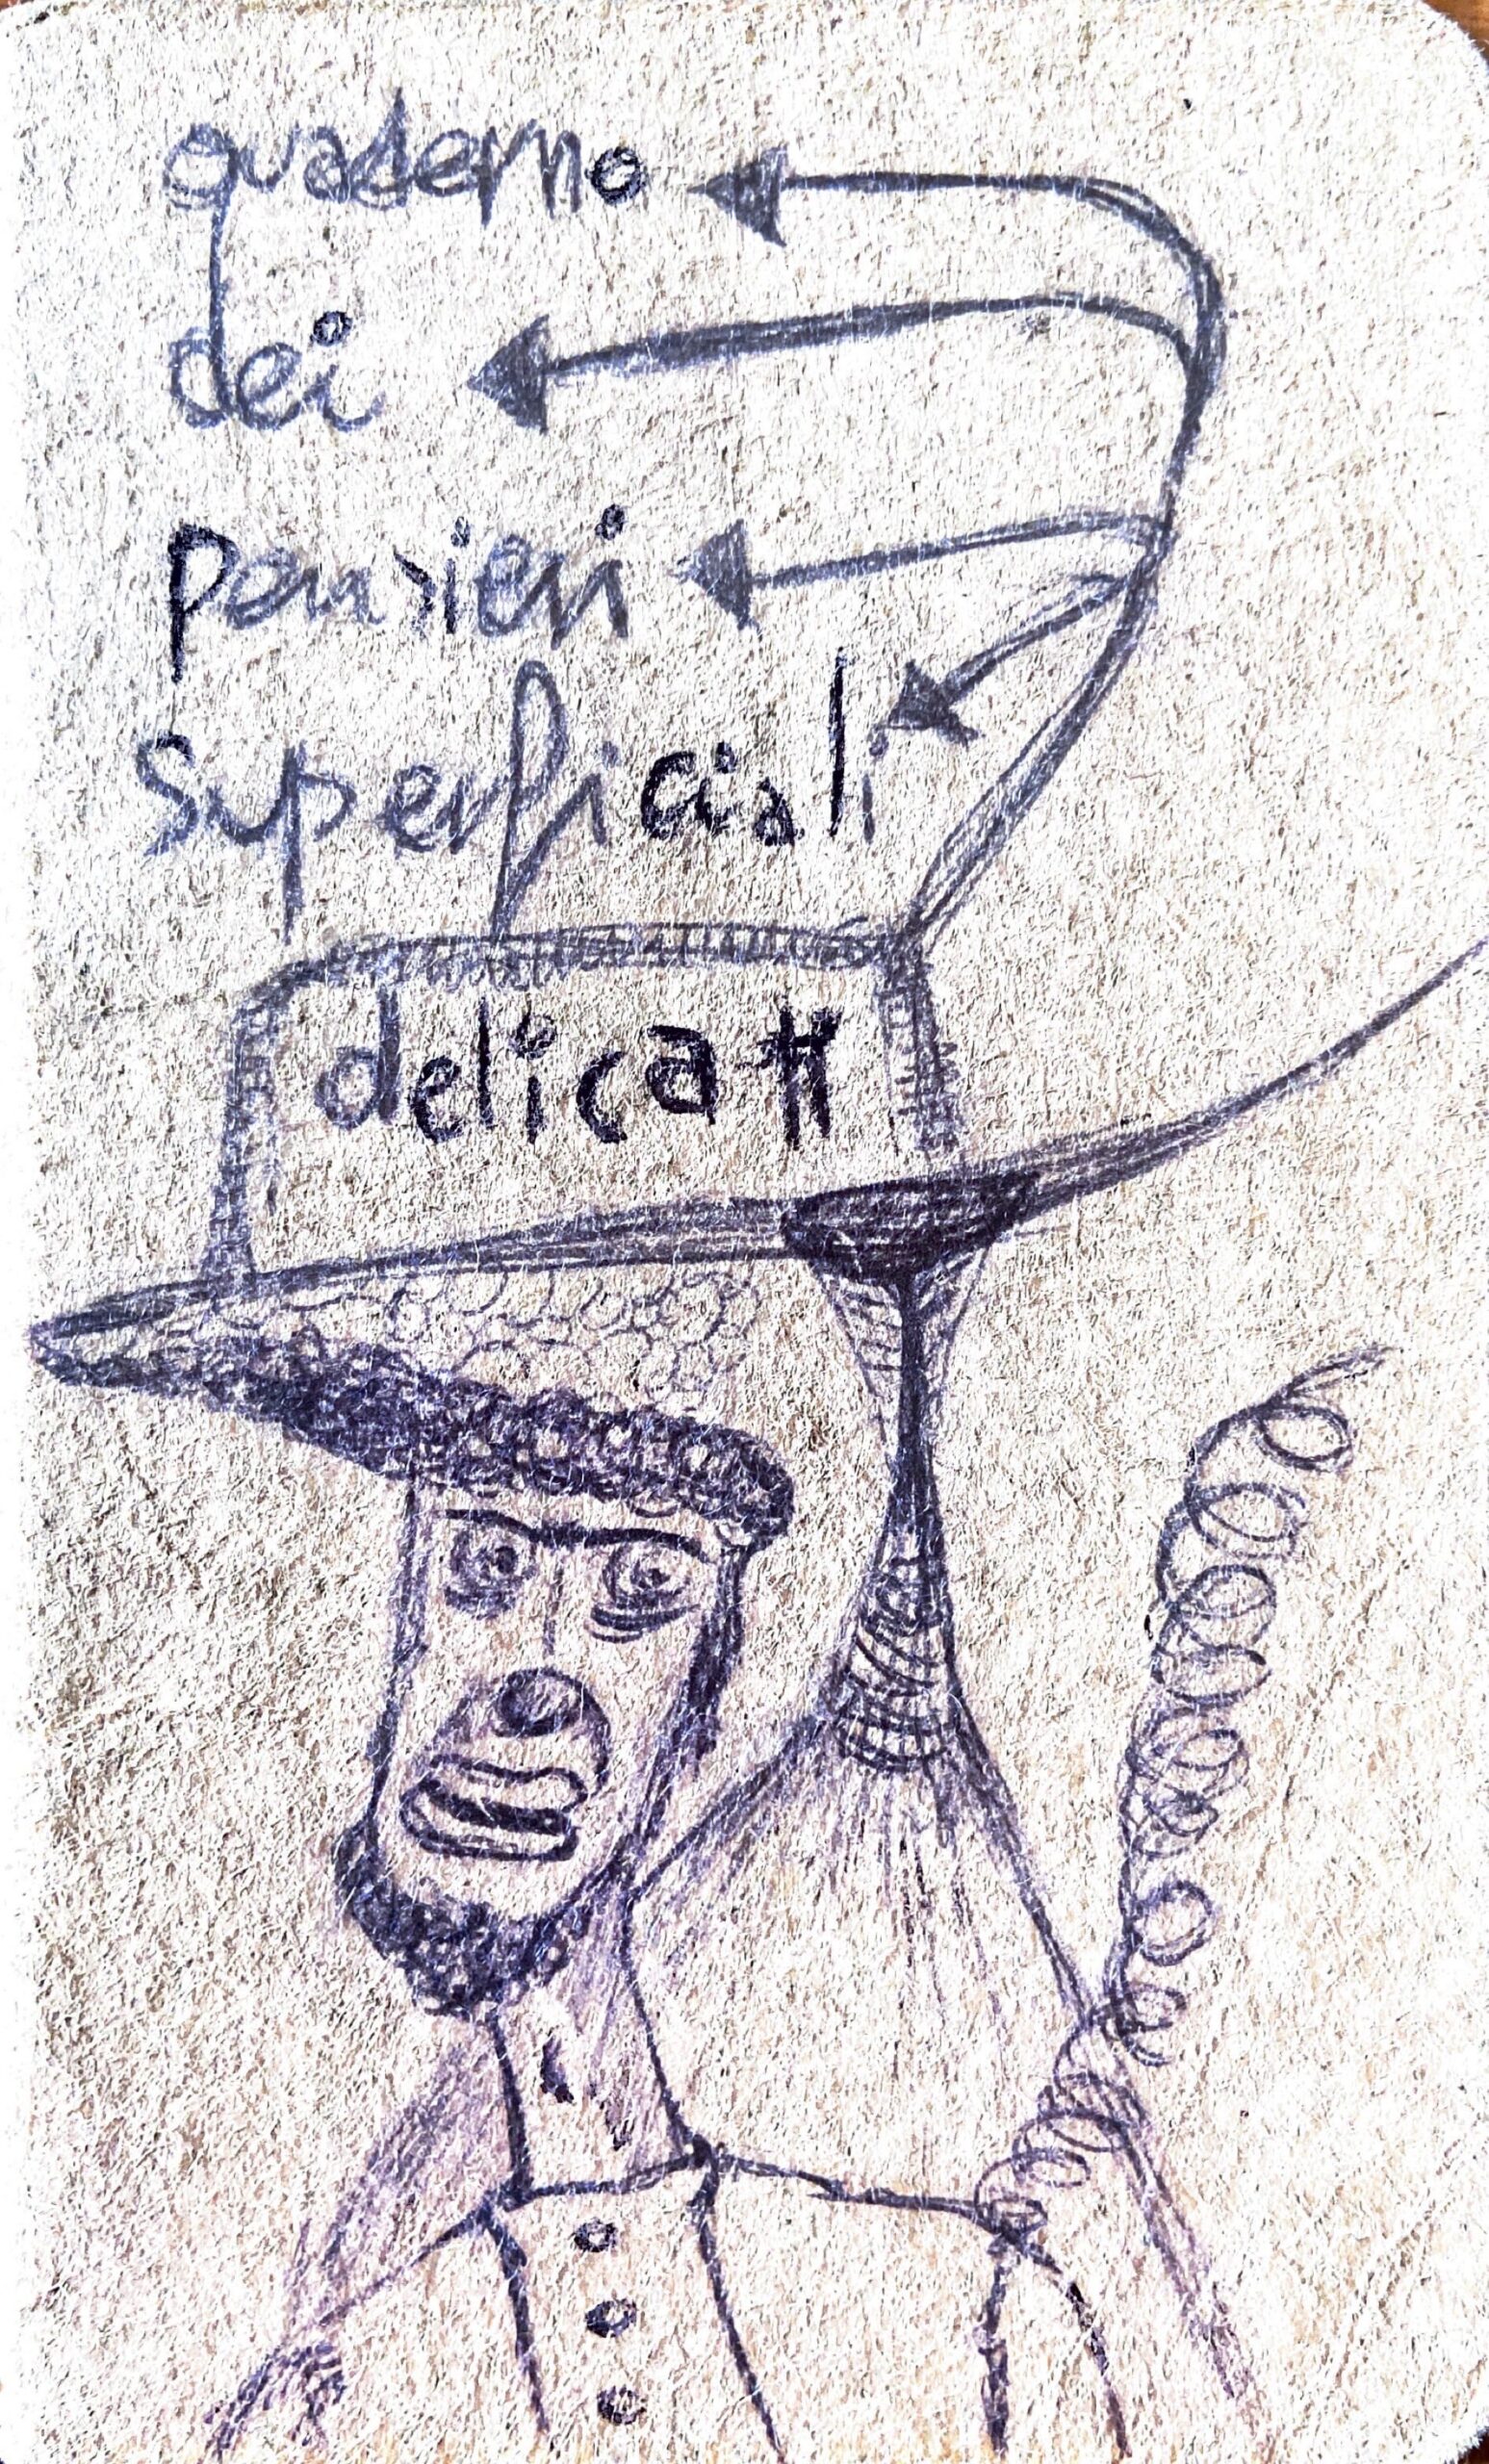 quaderno
dei
pensieri
superficiali
delicati